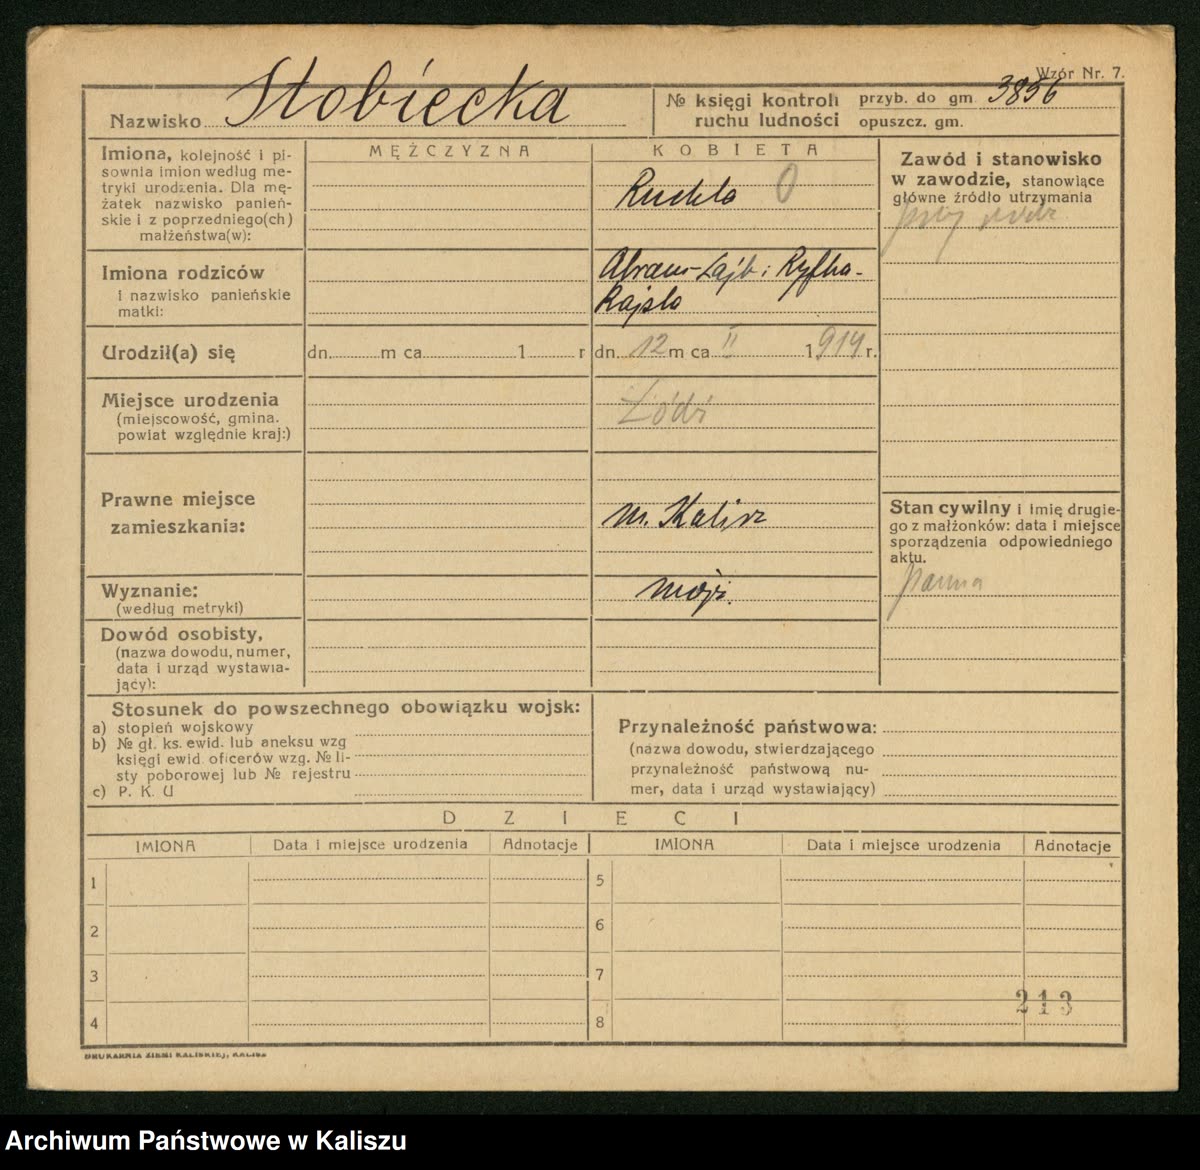 Wzór Nr. 7.
Nazwisko Stobiecka
№ księgi kontroli ruchu ludności
przyb. do gm. 3856
opuszcz. gm.
Imiona, kolejność i pi-
sownia imion według me-
tryki urodzenia. Dla mę-
żatek nazwisko panień-
skie i z poprzedniego(ch)
małżeństwa(w):
MĘŻCZYZNA
KOBIETA
Ruchla O
Zawód i stanowisko
w zawodzie, stanowiące
główne źródło utrzymania
przy
Imiona rodziców
i nazwisko panieńskie
matki:
Abram-Lajb i Ryfka-
Rajsla
Urodził(a) się
dn. m ca 1 r
dn. 12 m ca II 1914 r.
Miejsce urodzenia
(miejscowość, gmina.
powiat względnie kraj:)
Łódź
Prawne miejsce
zamieszkania:
m. Kalisz
Stan cywilny i imię drugie-
go z małżonków: data i miejsce
sporządzenia odpowiedniego
aktu.
panna
Wyznanie:
(według metryki)
mojż.
Dowód osobisty,
(nazwa dowodu, numer,
data i urząd wystawia-
jący):
Stosunek do powszechnego obowiązku wojsk:
a) stopień wojskowy
b) № gł. ks. ewid. lub aneksu wzg
księgi ewid. oficerów wzg. № li-
sty poborowej lub № rejestru
c) P. K. U
Przynależność państwowa:
(nazwa dowodu, stwierdzającego
przynależność państwową nu-
mer, data i urząd wystawiający)
DZIECI
IMIONA Data i miejsce urodzenia Adnotacje IMIONA Data i miejsce urodzenia Adnotacje
1 5
2 6
3 7
213
4 8
DRUKARNIA ZIEMI KALISKIEJ, KALISZ
Archiwum Państwowe w Kaliszu